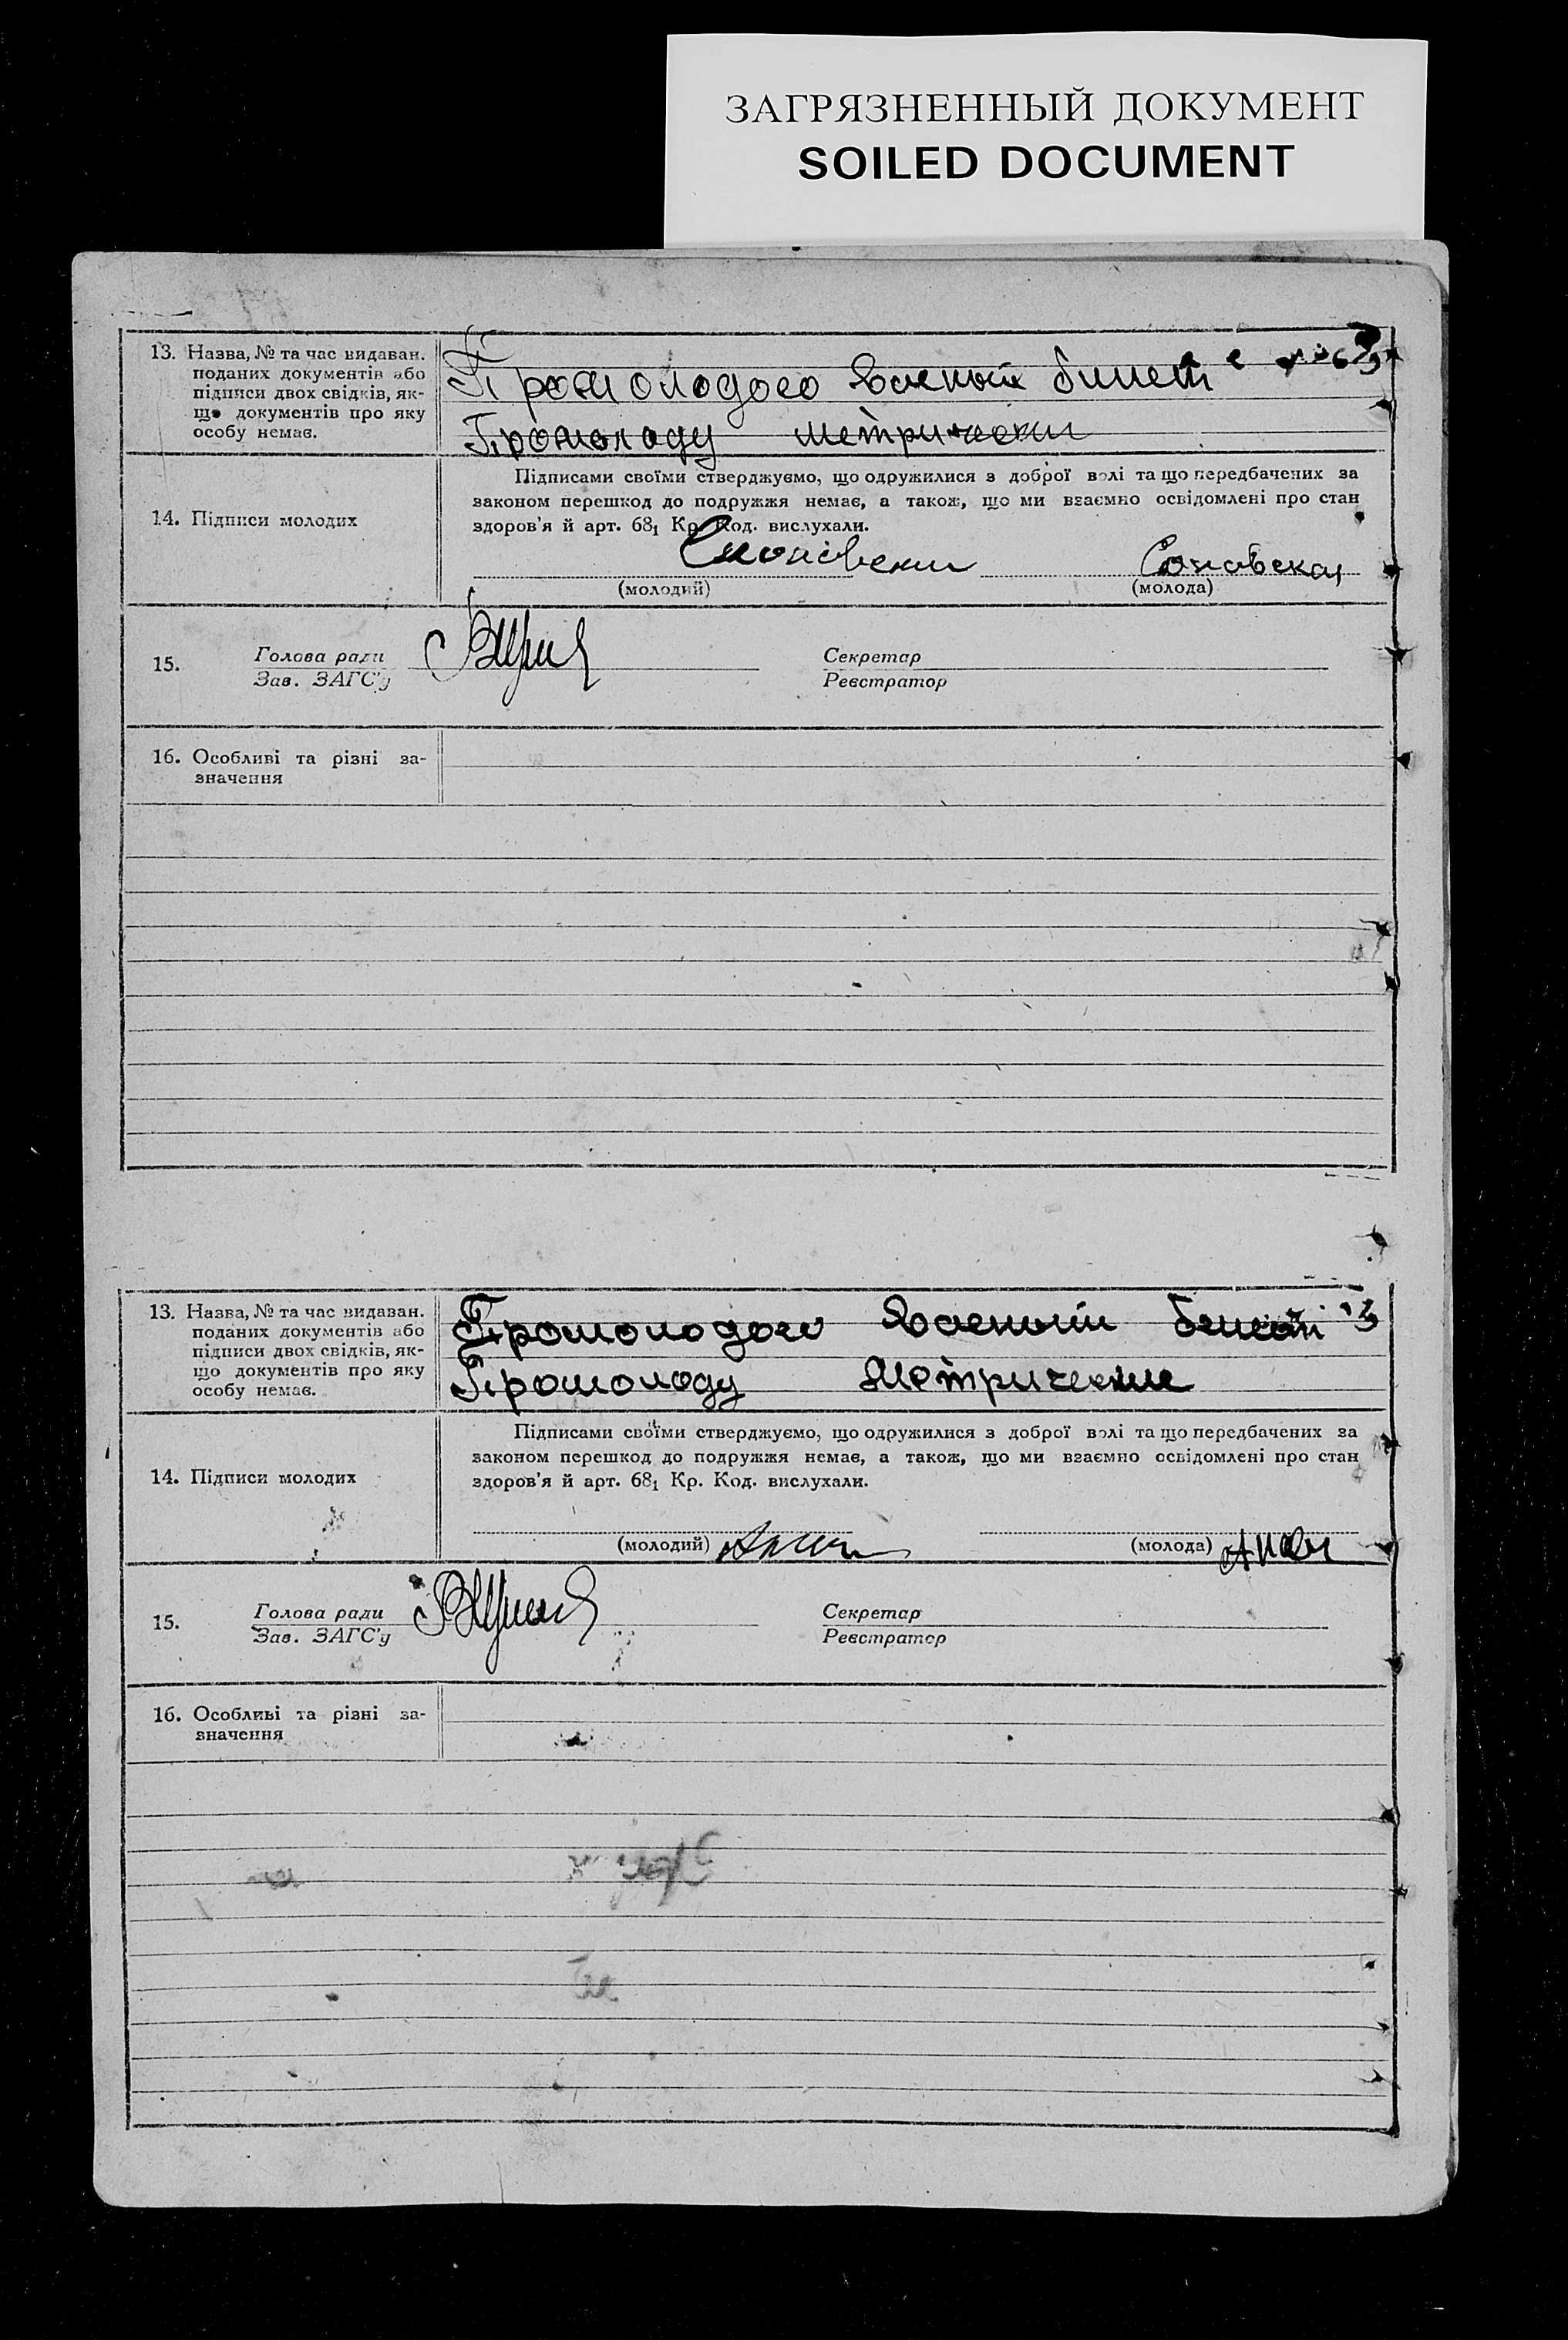 ЗАГРЯЗНЕННЫЙ ДОКУМЕНТ
SOILED DOCUMENT
13. Назва, № та час видаван.
поданих документів або
підписи двох свідків, як-
що документів про яку
особу немає.
Промолодого военый билет
Промолоду метрически
14. Підписи молодих
Підписами своїми стверджуємо, що одружилися з доброї волі та що передбачених за
законом перешкод до подружжя немає, а також, що ми взаємно освідомлені про стан
здоров'я й арт. 68₁ Кр. Код. вислухали.
(молодий)
(молода)
15.
Голова ради
Зав. ЗАГС'у
Секретар
Реєстратор
16. Особливі та різні за-
значення
13. Назва, № та час видаван.
поданих документів або
підписи двох свідків, як-
що документів про яку
особу немає.
Промолодого военыий билет
Промолоду Метрические
14. Підписи молодих
Підписами своїми стверджуємо, що одружилися з доброї волі та що передбачених за
законом перешкод до подружжя немає, а також, що ми взаємно освідомлені про стан
здоров'я й арт. 68₁ Кр. Код. вислухали.
(молодий)
(молода)
15.
Голова ради
Зав. ЗАГС'у
Секретар
Реєстратор
16. Особливі та різні за-
значення